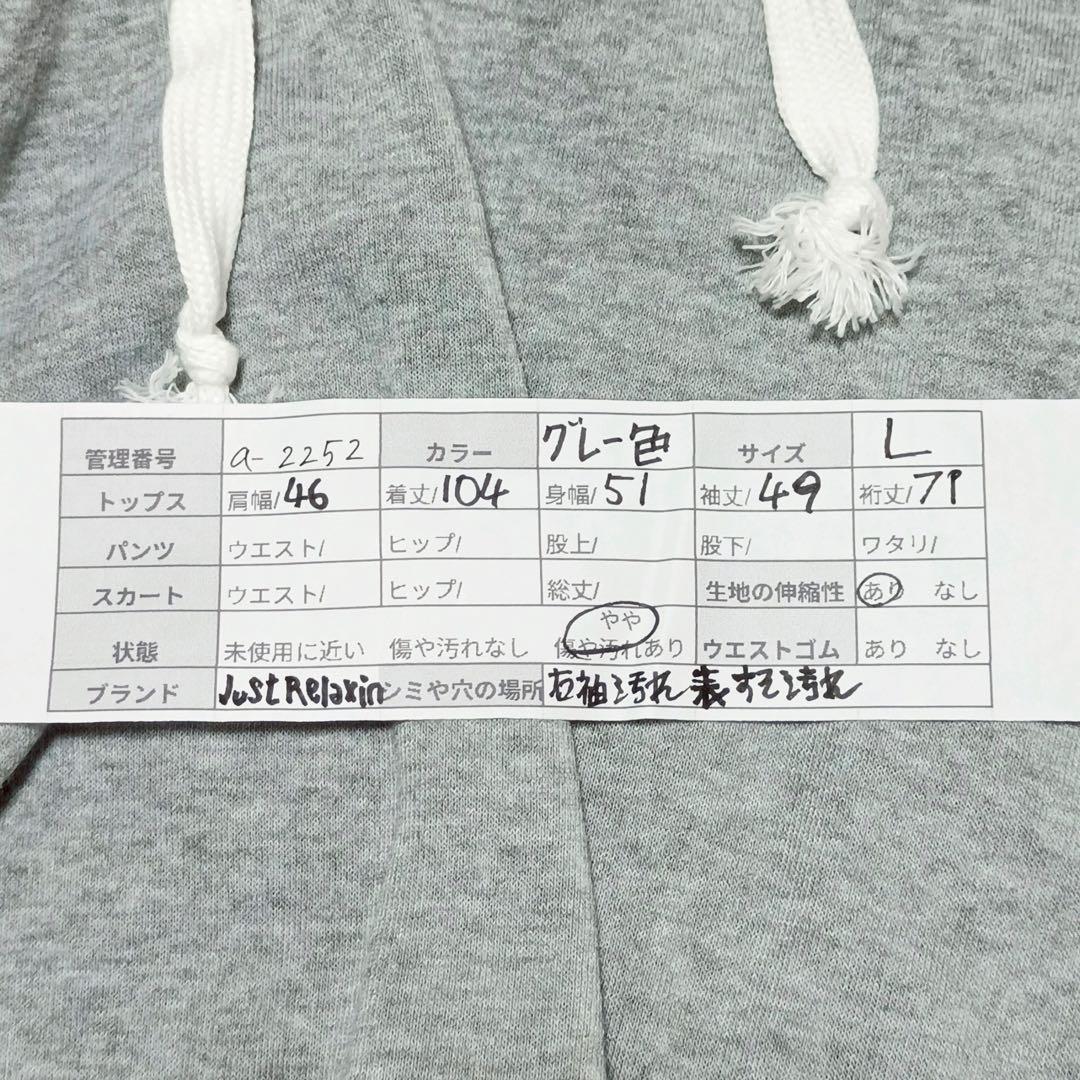 管理番号 a-2252 カラー グレー色 サイズ L
トップス 肩幅/46 着丈/104 身幅/51 袖丈/49 裄丈/71
パンツ ウエスト/ ヒップ/ 股上/ 股下/ ワタリ/
スカート ウエスト/ ヒップ/ 総丈/ 生地の伸縮性 あり なし
状態 未使用に近い 傷や汚れなし やや傷や汚れあり ウエストゴム あり なし
ブランド Just Relaxin シミや穴の場所 右袖汚れ 表すそ汚れ